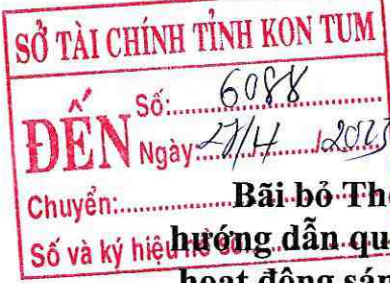 SỞ TÀI CHÍNH TỈNH KON TUM
ĐẾN
Số:.......6088.......
Ngày...27/4.../.2023
Chuyển:.......
Bãi bỏ Th
Số và ký hiệu
hướng dẫn qu
hoạt động sán